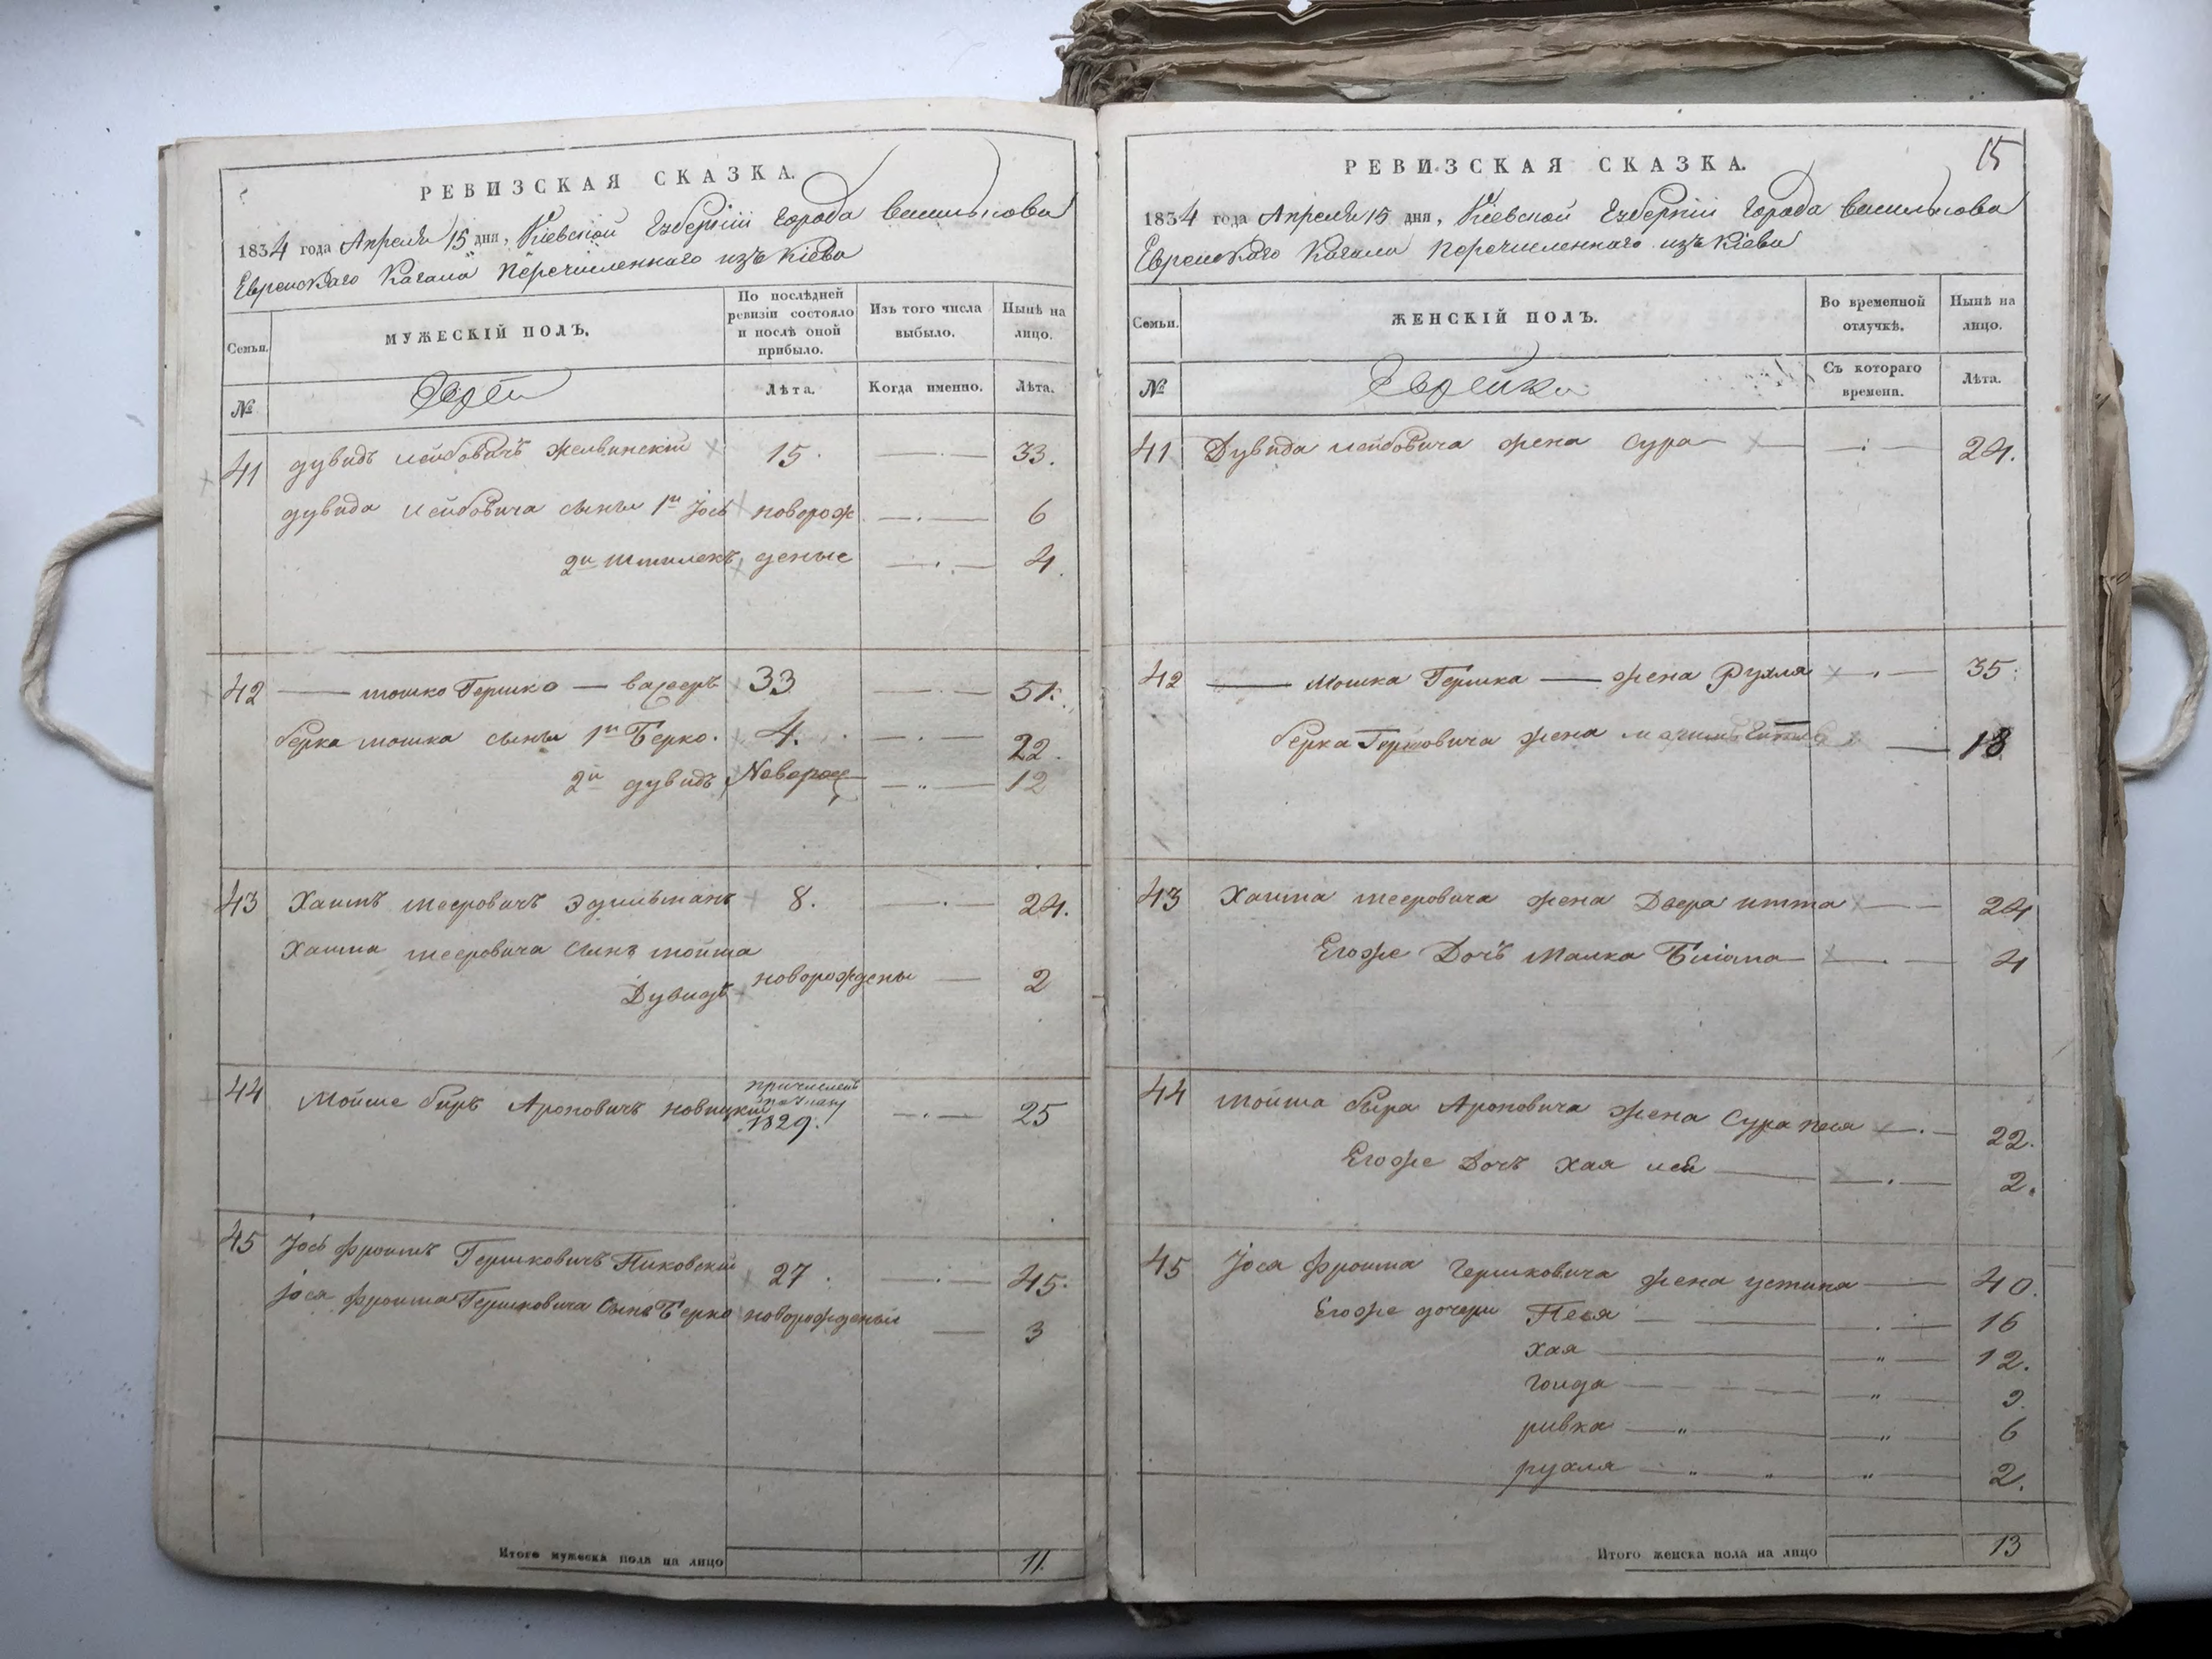 РЕВИЗСКАЯ СКАЗКА.
1834 года Апреля 15 дня, Кіевской Губерніи города Василькова
Еврейскаго Кагала перечисленнаго изъ Кіева
Семьи.
МУЖЕСКІЙ ПОЛЪ.
По послѣдней ревизіи состояло и послѣ оной прибыло.
Изъ того числа выбыло.
Нынѣ на лицо.
№
Евреи
Лѣта.
Когда именно.
Лѣта.
41 дувидъ лейбовичъ 15. 33.
дувида лейбовича сыны 1й Іось новорож 6
2й шмилекъ деные 4
42 мошко Гершко вассеръ 33 51.
берка мошка сыны 1й Берко. 4. 22.
2й дувидъ Новорож 12
43 Хаимъ мееровичъ Эдильманъ 8. 24.
Хаима мееровича сынъ мойша
Дувидъ новорождены 2
44 Мойше беръ Ароновичъ новицкій причисленъ 1829. 25
45 Іось фроимъ Гершковичъ Пиковскій 27. 45.
Іося фроима Гершковича сынъ Берко новорожденый 3
Итого мужеска пола на лицо 11.
15
РЕВИЗСКАЯ СКАЗКА.
1834 года Апреля 15 дня, Кіевской Губерніи города Василькова
Еврейскаго Кагала перечисленнаго изъ Кіева
Семьи.
ЖЕНСКІЙ ПОЛЪ.
Во временной отлучкѣ.
Нынѣ на лицо.
№
Еврейки
Съ котораго времена.
Лѣта.
41 Дувида лейбовича жена сура 24.
42 Мошка Гершка жена Рухля 35.
берка Гершовича жена 18
43 Хаима мееровича жена Двера итта 24
Егоже Дочь Малка 4
44 мойша бера Ароновича жена Сура песя 22.
Егоже Дочь хая лея 2.
45 Іося фроима Гершковича жена устина 40.
Егоже дочери Песя 16
хая 12.
гольда
ривка 6
рухля 2.
Итого женска пола на лицо 13